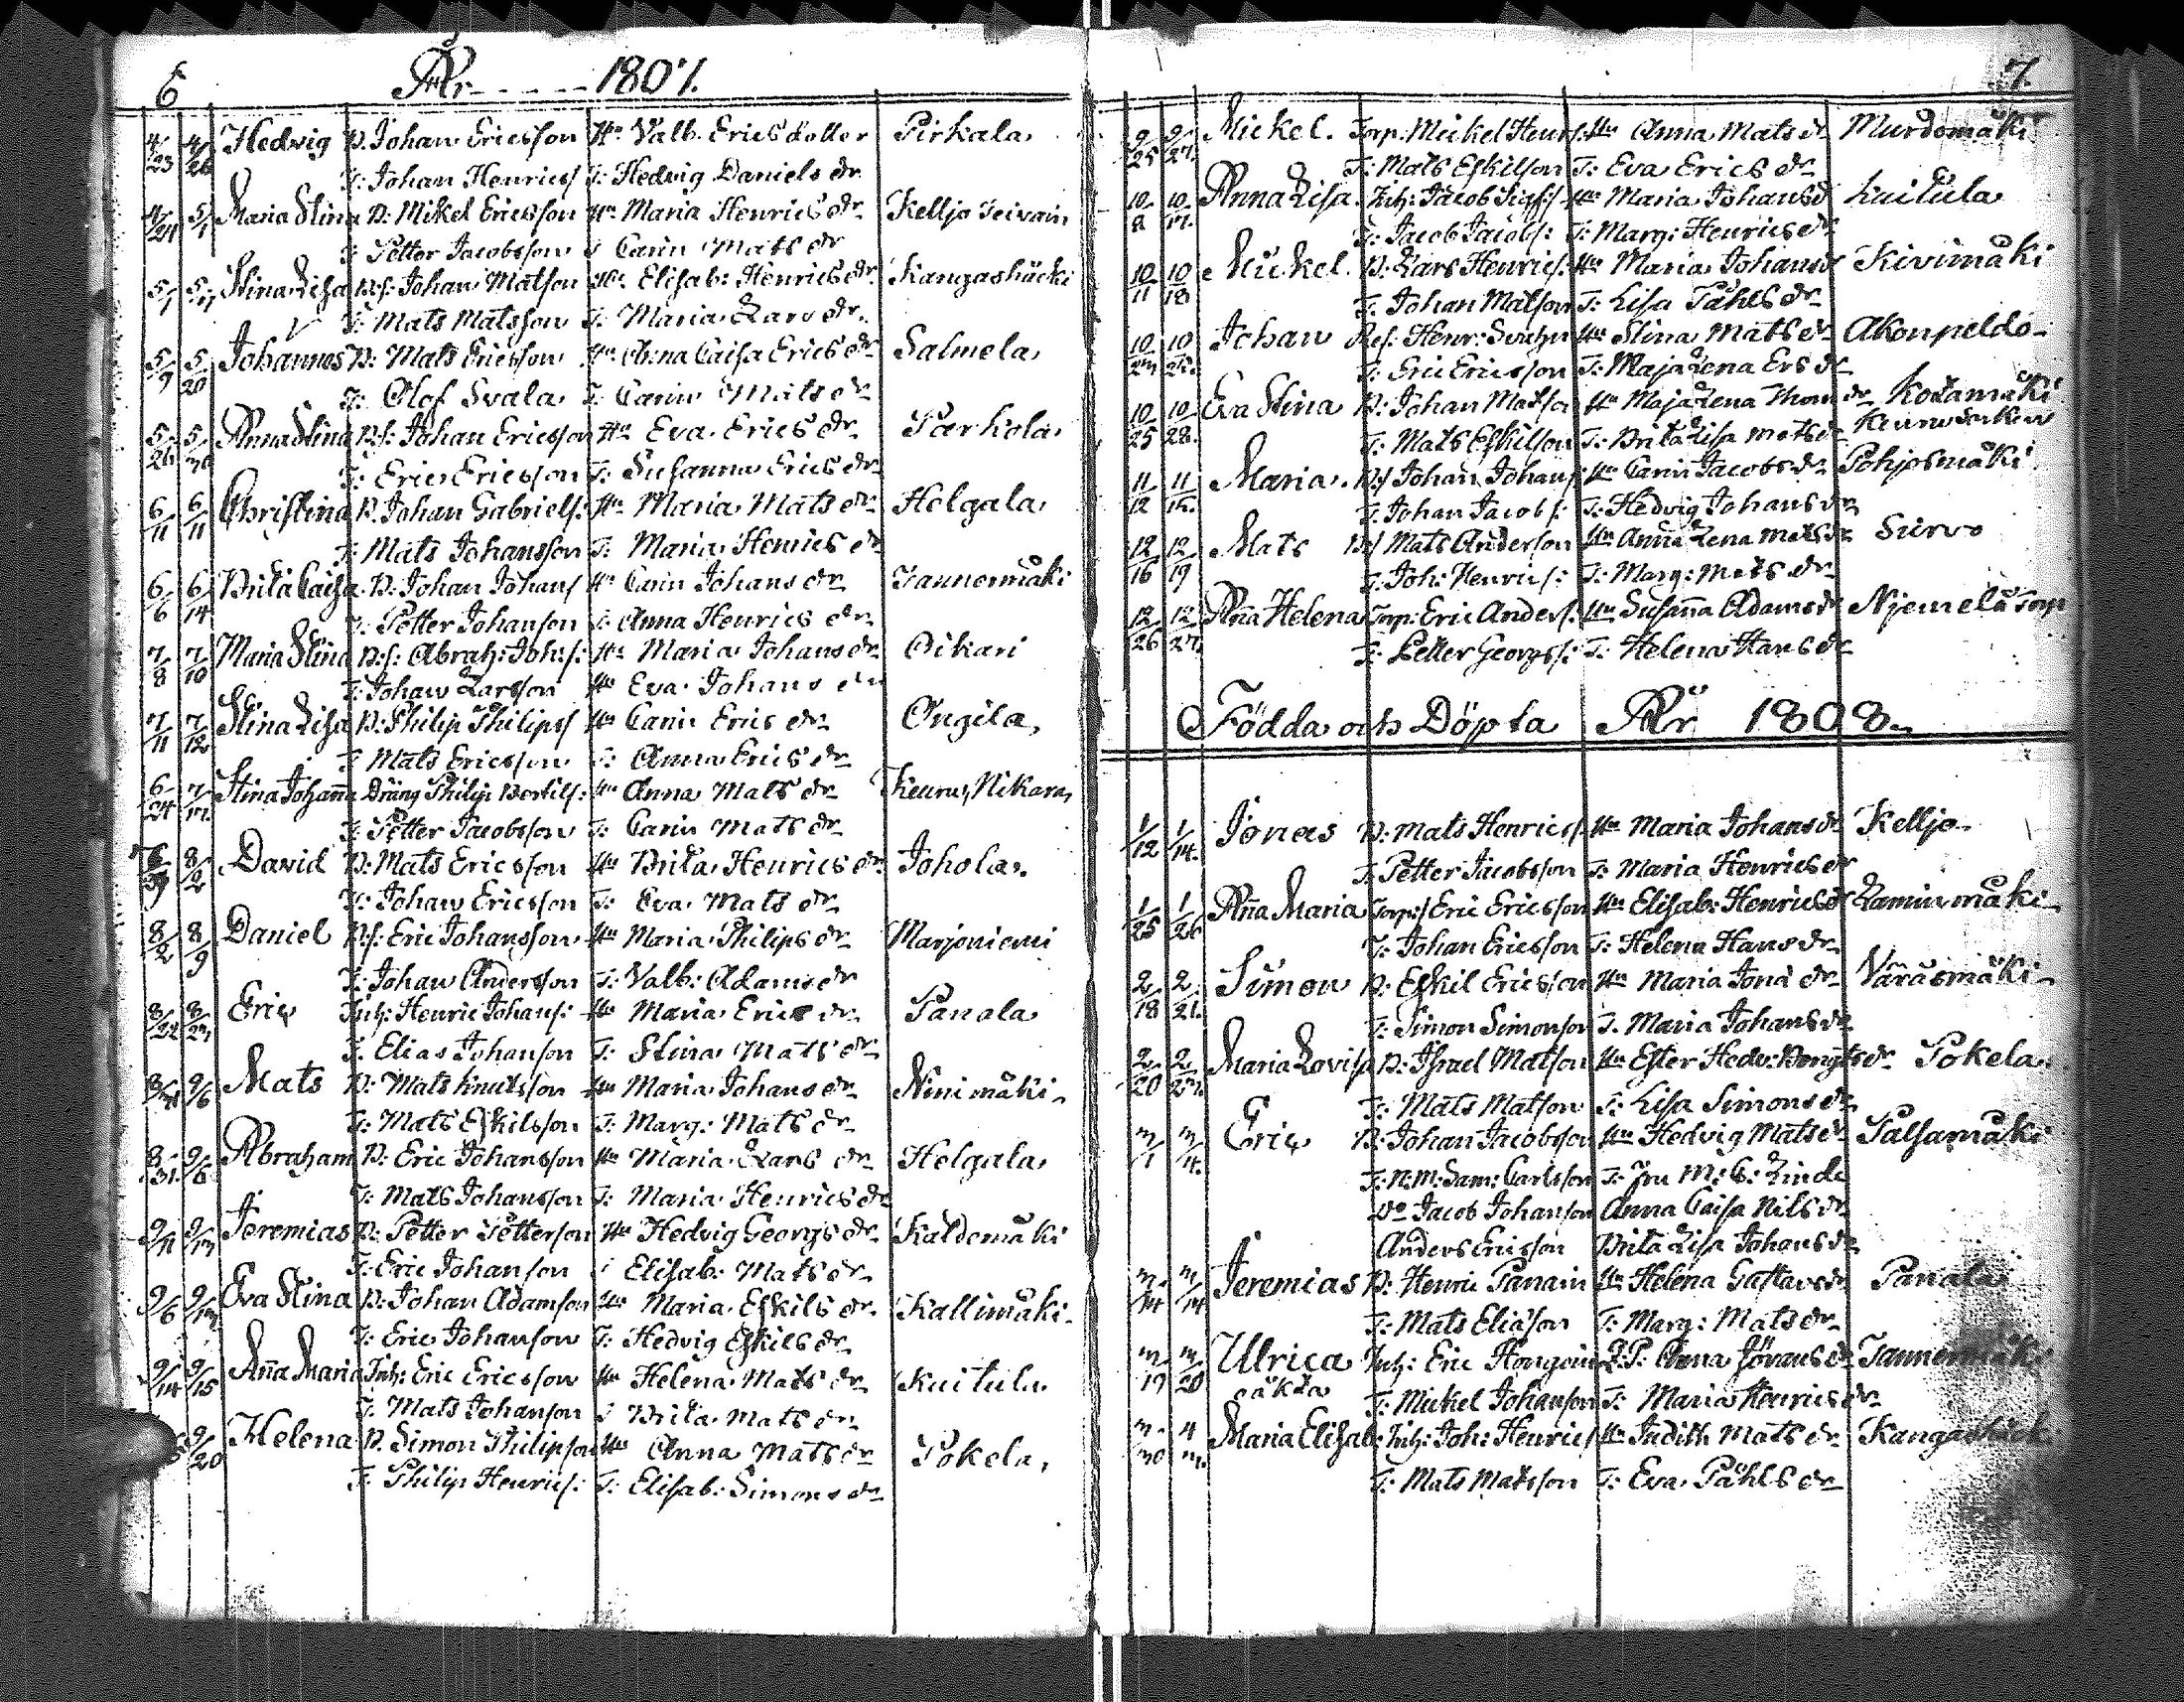 6 År - - - - - 1807.
4/23 4/26 Hedvig B. Johan Ericsson Hu Valb. Ericsdotter Pirkala
T: Johan Henricss T: Hedvig Daniels dr
4/24 5/1 Maria Stina B: Mikel Ericsson Hu Maria Henrics dr Keljo
T Petter Jacobsson T Carin Mats dr
5/1 Stina Lisa Bs: Johan Matson Hu Elisab: Henrics dr Kangashäcki
T: Mats Matsson T: Maria Lars dr
5/9 5/20 Johannes B: Mats Ericsson Hu Anna Caisa Erics dr Salmela
T: Olof Svala T: Carin Mats dr
5/26 5/30 Anna Stina Bs: Johan Ericsson Hu Eva Erics dr Parkola
T: Eric Ericsson T: Susanna Erics dr
6/11 6/11 Christina B. Johan Gabriels: Hu Maria Mats dr Helgala
T: Mats Johansson T: Maria Henrics dr
6/6 6/14 Brita Caisa B. Johan Johans Hu Carin Johans dr Tannermäki
T. Petter Johanson T: Anna Henrics dr
7/8 7/10 Maria Stina Bs: Abrah: Joh:s: Hu Maria Johans dr Oikari
T: Johan Larsson Hu Eva Johans dr
7/11 7/12 Stina Lisa B: Philip Philips Hu Carin Erics dr Ongila
T Mats Ericsson T: Anna Erics dr
6/24 7/17 Stina Johanna Dräng Philip Bertils: Hu Anna Mats dr Keuru, Nikara
T: Petter Jacobsson T: Carin Mats dr
8/2 David B: Mats Ericsson Hu Brita Henrics dr Johola
T: Johan Ericsson T: Eva Mats dr
8/2 8/9 Daniel Bs: Eric Johansson Hu Maria Philips dr Marjoniemi
T: Johan Andersson T: Valb: Adams dr
8/22 8/23 Eric Inh: Henric Johans: Hu Maria Erics dr Panala
T. Elias Johanson T: Stina Mats dr
9/6 Mats B: Mats Knutsson Hu Maria Johans dr Ninimäki
T: Mats Eskilsson T: Marg: Mats dr
8/31 9/6 Abraham B: Eric Johansson Hu Maria Lars dr Helgala
T: Mats Johansson T: Maria Henrics dr
9/11 9/13 Jeremias B: Petter Petterson Hu Hedvig Georgs dr Kaldomäki
T: Eric Johanson T Elisab: Mats dr
9/6 9/13 Eva Stina B: Johan Adamson Hu Maria Eskils dr Kallimäki
T: Eric Johanson T: Hedvig Eskils dr
9/14 9/15 Anna Maria Inh: Eric Ericsson Hu Helena Mats dr Kuitula
T. Mats Johanson T Brita Mats dr
9/20 Helena B. Simon Philipson Hu Anna Mats dr Pokela
T: Philip Henrics: T: Elisab: Simons dr
7.
9/25 9/27 Mickel. Torp: Mickel Henrs: Hu Anna Mats dr Murdomäki
T: Mats Eskilson T: Eva Erics dr
10/8 10/17 Anna Lisa Inh: Jacob Sigfs: Hu Maria Johans dr Kuitula
T: Jacob Jacobs: T: Marg: Henrics dr
10/11 10/18 Mickel. B: Lars Henrics: Hu Maria Johans dr Kivimäki
T. Johan Matson T: Lisa Påhls dr
10/27 Johan Henr: Svahn Hu Stina Mats dr Akonpeldo
T: Eric Ericsson T: Maja Lena Ers dr
10/25 10/28 Eva Stina B: Johan Matson Hu Maja Lena Thom dr Kotamäki
T: Mats Eskilson T: Brita Lisa Mats dr
11/12 11/15 Maria. Bs Johan Johans: Hu Carin Jacobs dr Pohjosmäki
T. Johan Jacobs: T: Hedvig Johans dr
12/16 12/19 Mats Bs Mats Anderson Hu Anna Lena Mats dr Survo
T. Joh: Henrics: T: Marg: Mats dr
12/26 12/27 Anna Helena Torp: Eric Anders: Hu Susanna Adams dr Njemelä Torp
T: Petter Georgs: T: Helena Hans dr
Födda och Döpta År 1808
1/12 1/14 Jonas B: Mats Henrics Hu Maria Johans dr Keljo
T: Petter Jacobsson T: Maria Henrics dr
1/25 1/26 Anna Maria Torp:s Eric Ericsson Hu Elisab: Henrics dr Laminmäki
T: Johan Ericsson T: Helena Hans dr
2/18 2/21 Simon B: Eskil Ericsson Hu Maria Jona dr Väräsmäki
T: Simon Simonson T. Maria Johans dr
2/20 2/27 Maria Lovisa B: Israel Matson Hu Ester Hedv: Bengts dr Pokela
T: Mats Matson T: Lisa Simons dr
3/1 3/4 Eric B: Johan Jacobsson Hu Hedvig Mats dr Palsamäki
T: N:M: Sam: Carlsson T: Fru M: C: Linde
Do Jacob Johanson Anna Caisa Nils dr
Anders Ericsson Brita Lisa Johans dr
3/14 3/14 Jeremias B: Henric Panain Hu Helena Gustavs dr Panala
T: Mats Eliason T: Marg: Mats dr
3/19 3/20 Ulrica Inh: Eric Hongoin Q.P: Anna Görans dr Tannermäki
oäkta T: Mickel Johanson T: Maria Henrics dr
3/30 4/3 Maria Elisab: Inh: Joh: Henrics Hu Judith Mats dr Kangashäck
T: Mats Matsson T: Eva Påhls dr